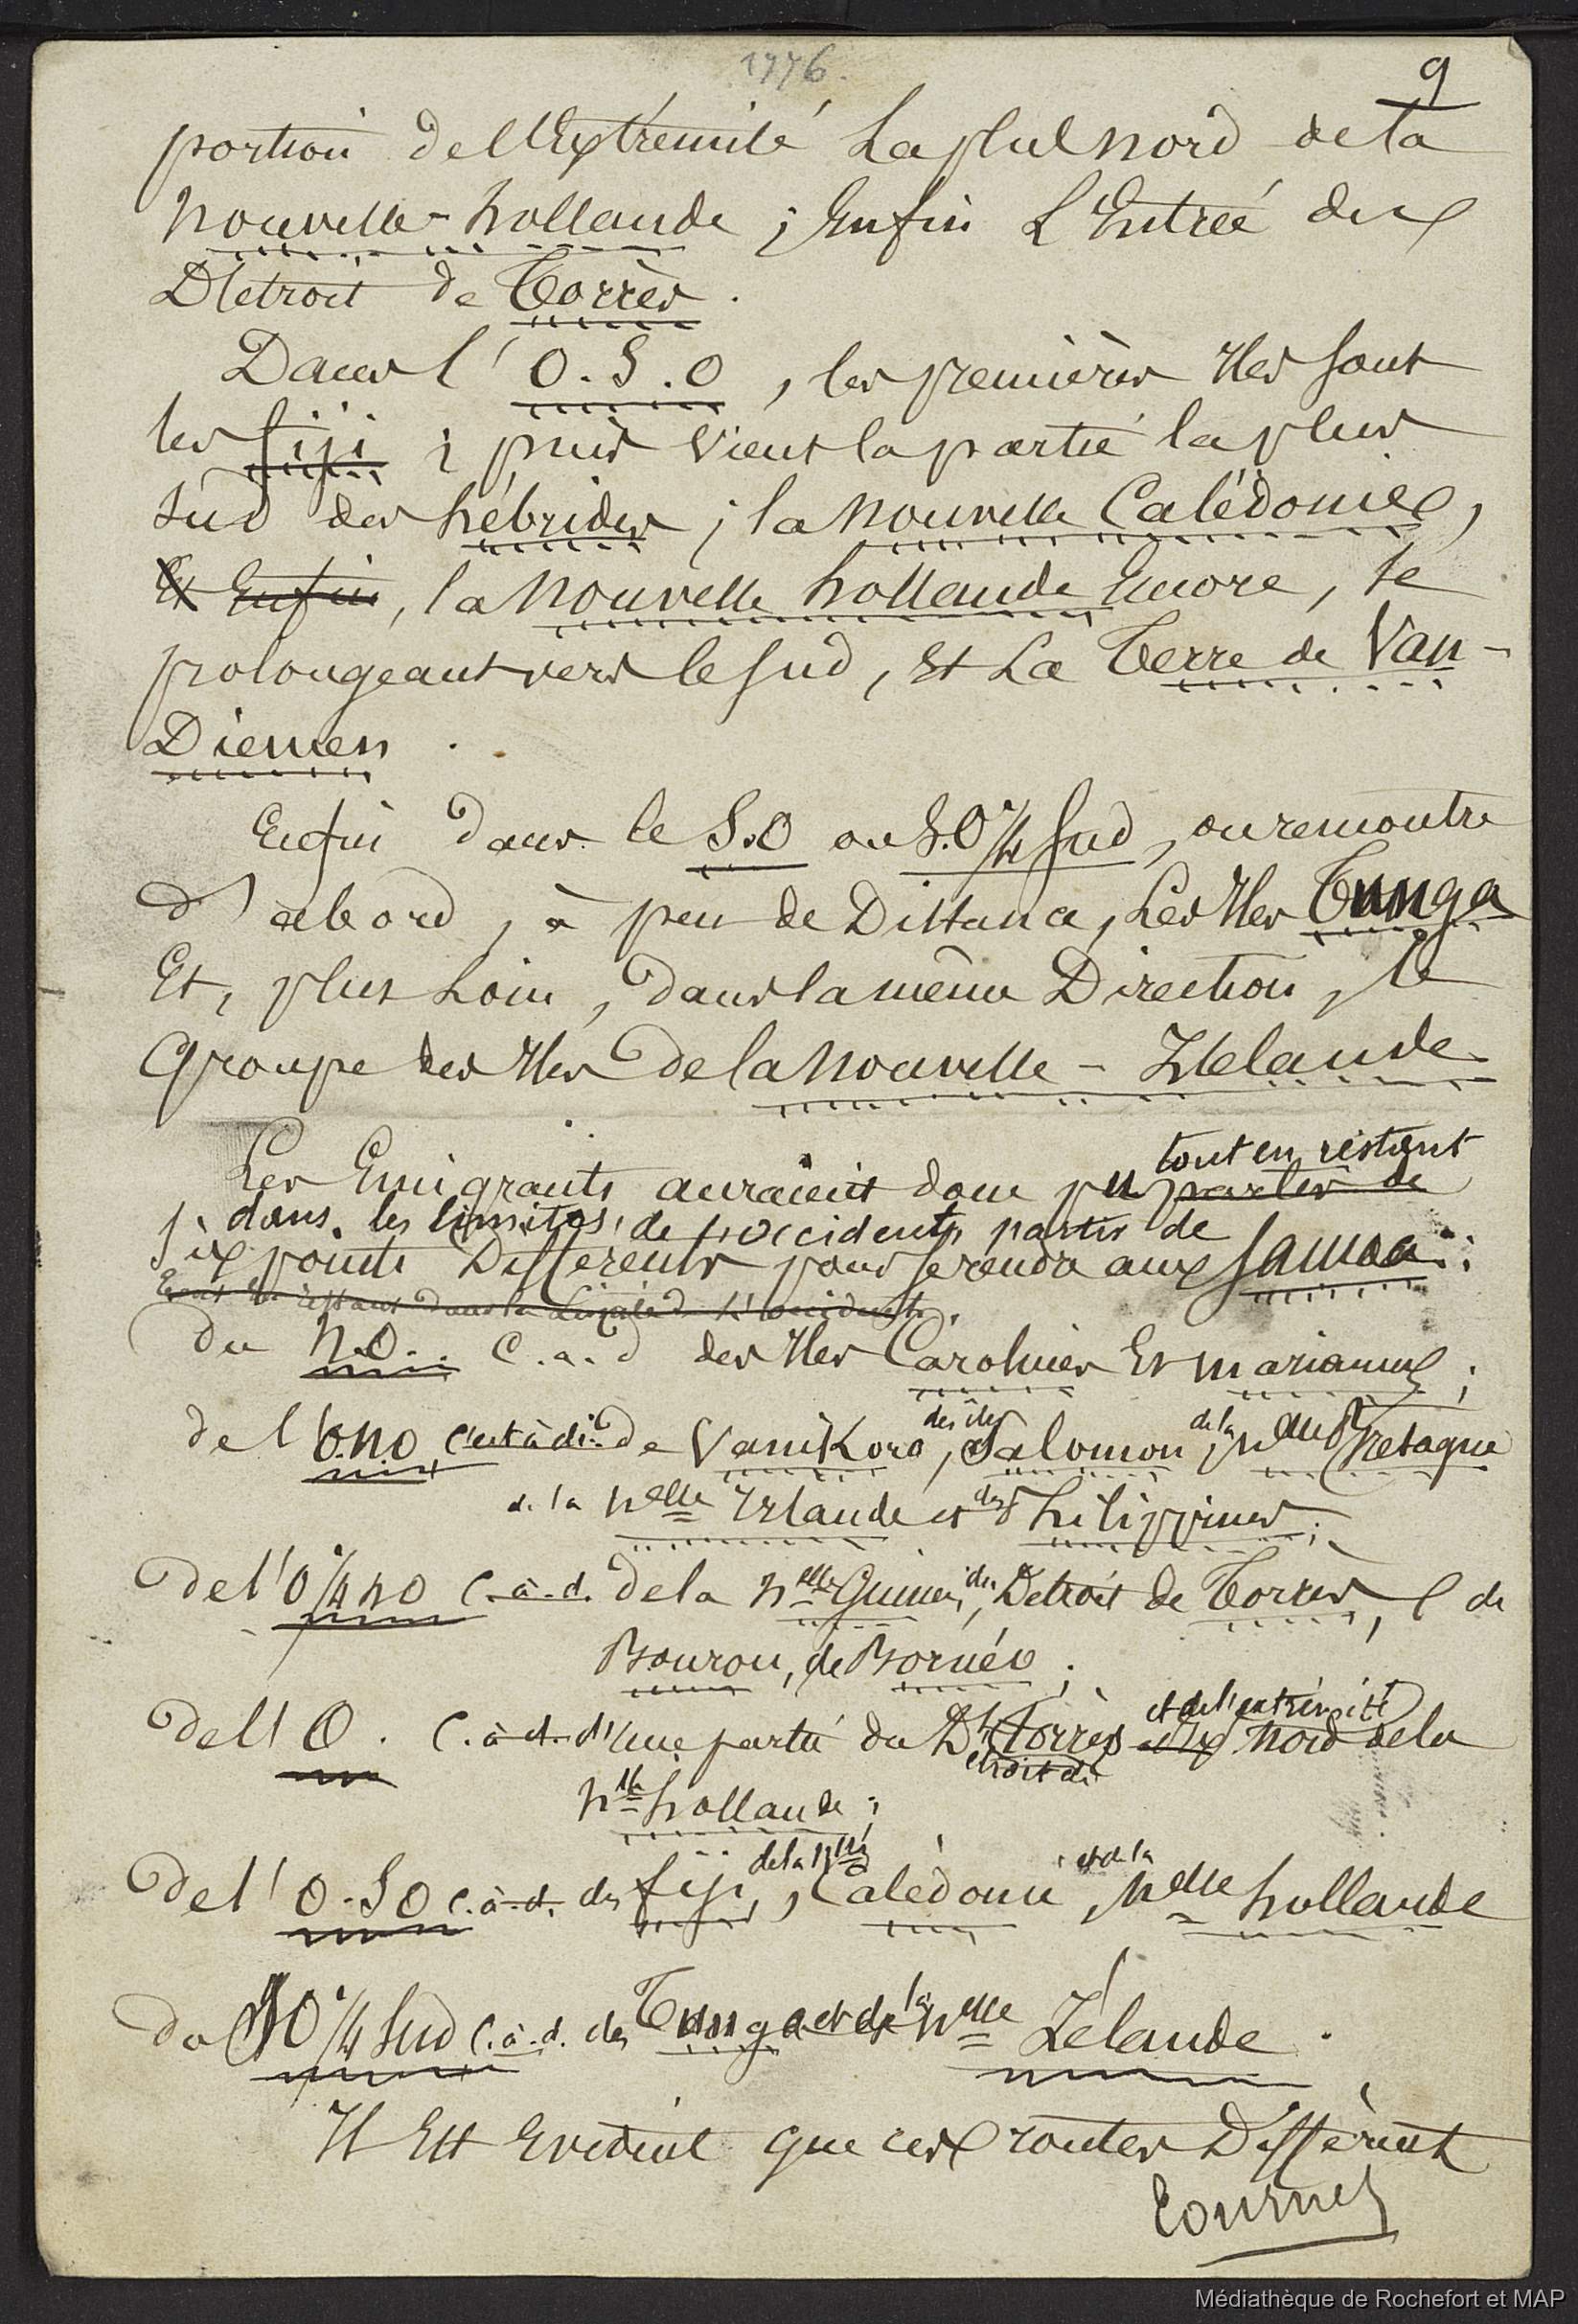 1776.
9
portion de l'Extrémité La plus nord de la
nouvelle-hollande ; Enfin L'Entrée du
Détroit de Torrès.
Dans l'O.S.O, les premières Iles sont
les fiji ; puis vient la partie la plus
sud des hébrides ; la nouvelle Calédonie,
Et Enfin, la nouvelle hollande Encore, se
prolongeant vers le sud, Et La Terre de Van-
Diemen.
Enfin dans le S.O ou S.O ¼ Sud, on rencontre
d'abord, à peu de Distance, Les Iles Tunga
Et, plus Loin, dans la même Direction, le
Groupe des Iles de la nouvelle-Zélande
tout en restant
Les Emigrants auraient donc pu parler de
dans les limites de l'occident, partir de
six points Différents pour se rendre aux Samoa :
tout en restant dans les Limites de l'occident,
Du N.O.. c.a.d des Iles Carolines Et mariannes ;
des îles de la
de l'O.NO c'est à di. de Vanikoro, Salomon, nelle Bretagne
de la nelle Irlande et des Philippines ;
de l'O ¼ NO c.-à-d. de la nelle Guinée, du Détroit de Torrès, & de
Bourou, de Bornéo ;
et de l'extrémité
de l'O. c.-à-d. d'une partie du Dt Torrès Nord de la
étroit de
nlle hollande ;
de la nlle et de la
de l'O.SO c.-à-d. des fiji, Calédonie, nelle hollande
du SO ¼ Sud c.-à-d. des Tunga et de la nelle Zélande.
Il Est Evident que ces routes Diffèrent
Tournes
Médiathèque de Rochefort et MAP